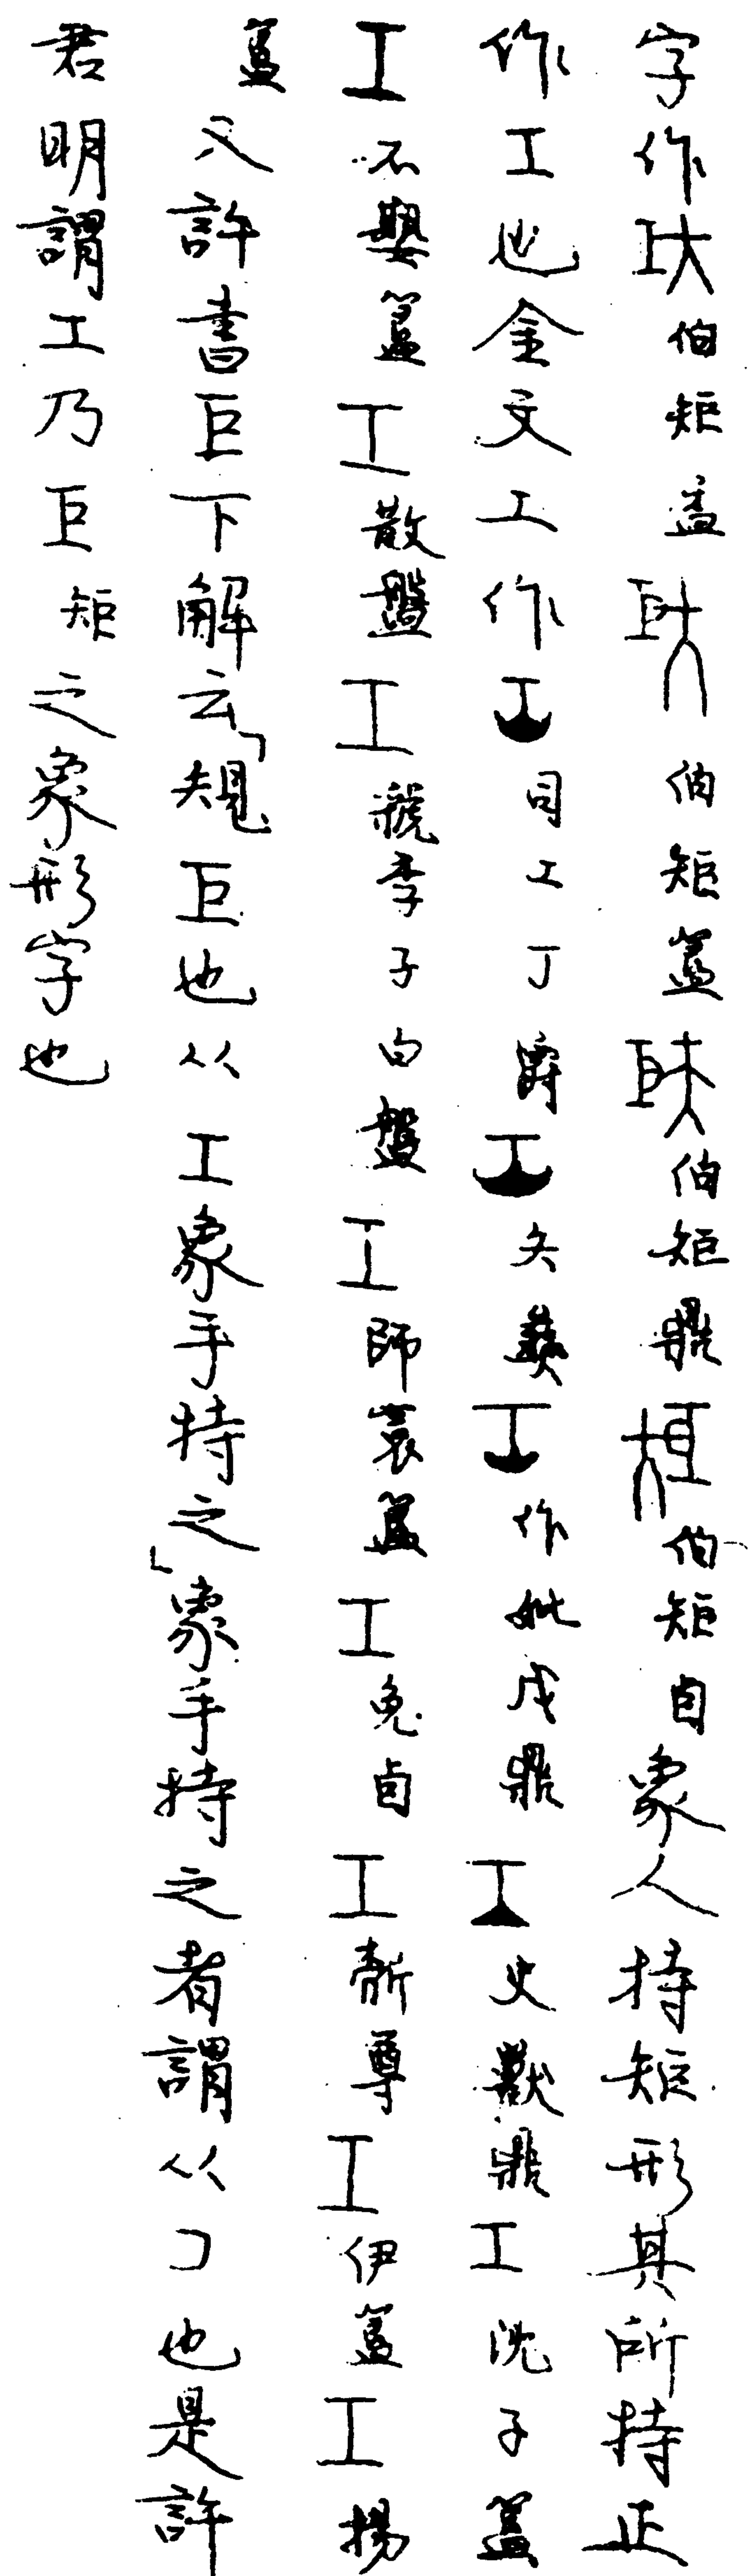 字作伯矩盉伯矩簋伯矩鼎伯矩卣象人持矩形其所持正
作工也金文工作司工丁爵矢彝作妣戊鼎史獸鼎工沈子簋
工不𡢁簋工散盤工虢季子白盤工師㝨簋工免卣工尊工伊簋工揚
簋又許書巨下解云「規巨也从工象手持之」象手持之者謂从コ也是許
君明謂工乃巨矩之象形字也